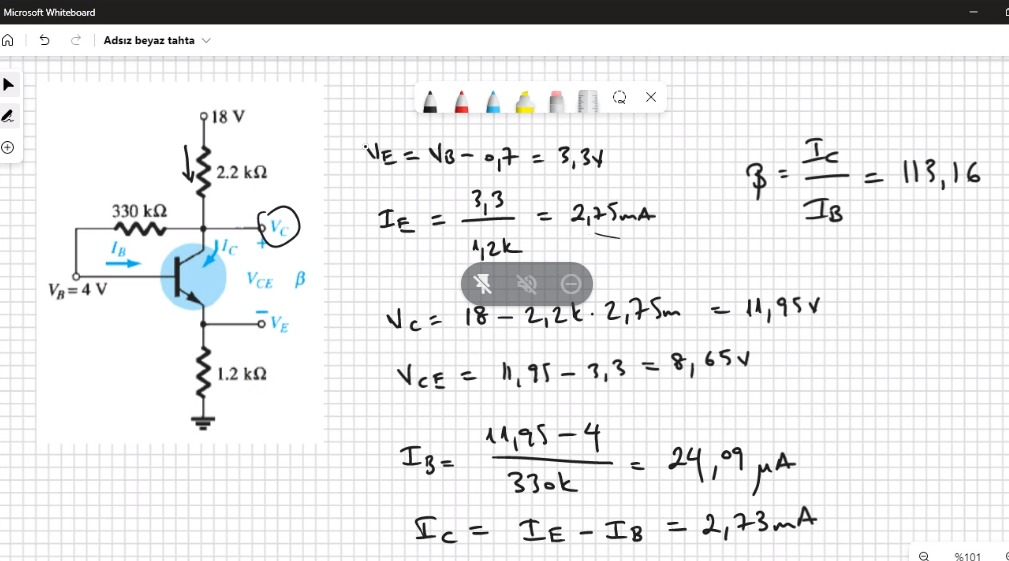 Microsoft Whiteboard
Adsız beyaz tahta
18 V
2.2 kΩ
330 kΩ
VC
+
IB
IC
VCE β
VB = 4 V
−
VE
1.2 kΩ
VE = VB - 0,7 = 3,3V
IE = 3,3 / 1,2k = 2,75mA
VC = 18 - 2,2k . 2,75m = 11,95V
VCE = 11,95 - 3,3 = 8,65V
IB = 11,95 - 4 / 330k = 24,09 μA
IC = IE - IB = 2,73mA
β = IC / IB = 113,16
%101